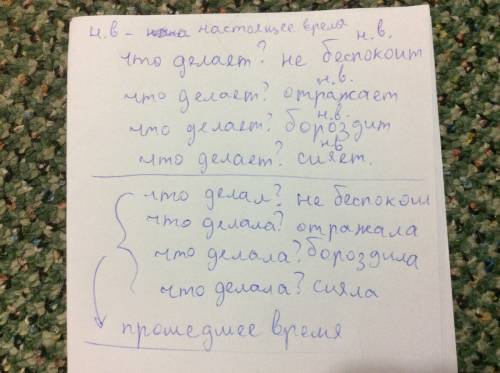 н.в – настоящее время
н.в.
что делает? не беспокоит
н.в.
что делает? отражает
н.в.
что делает? бороздит
н.в
что делает? сияет.
что делал? не беспокоил
что делала? отражала
что делала? бороздила
что делала? сияла
прошедшее время